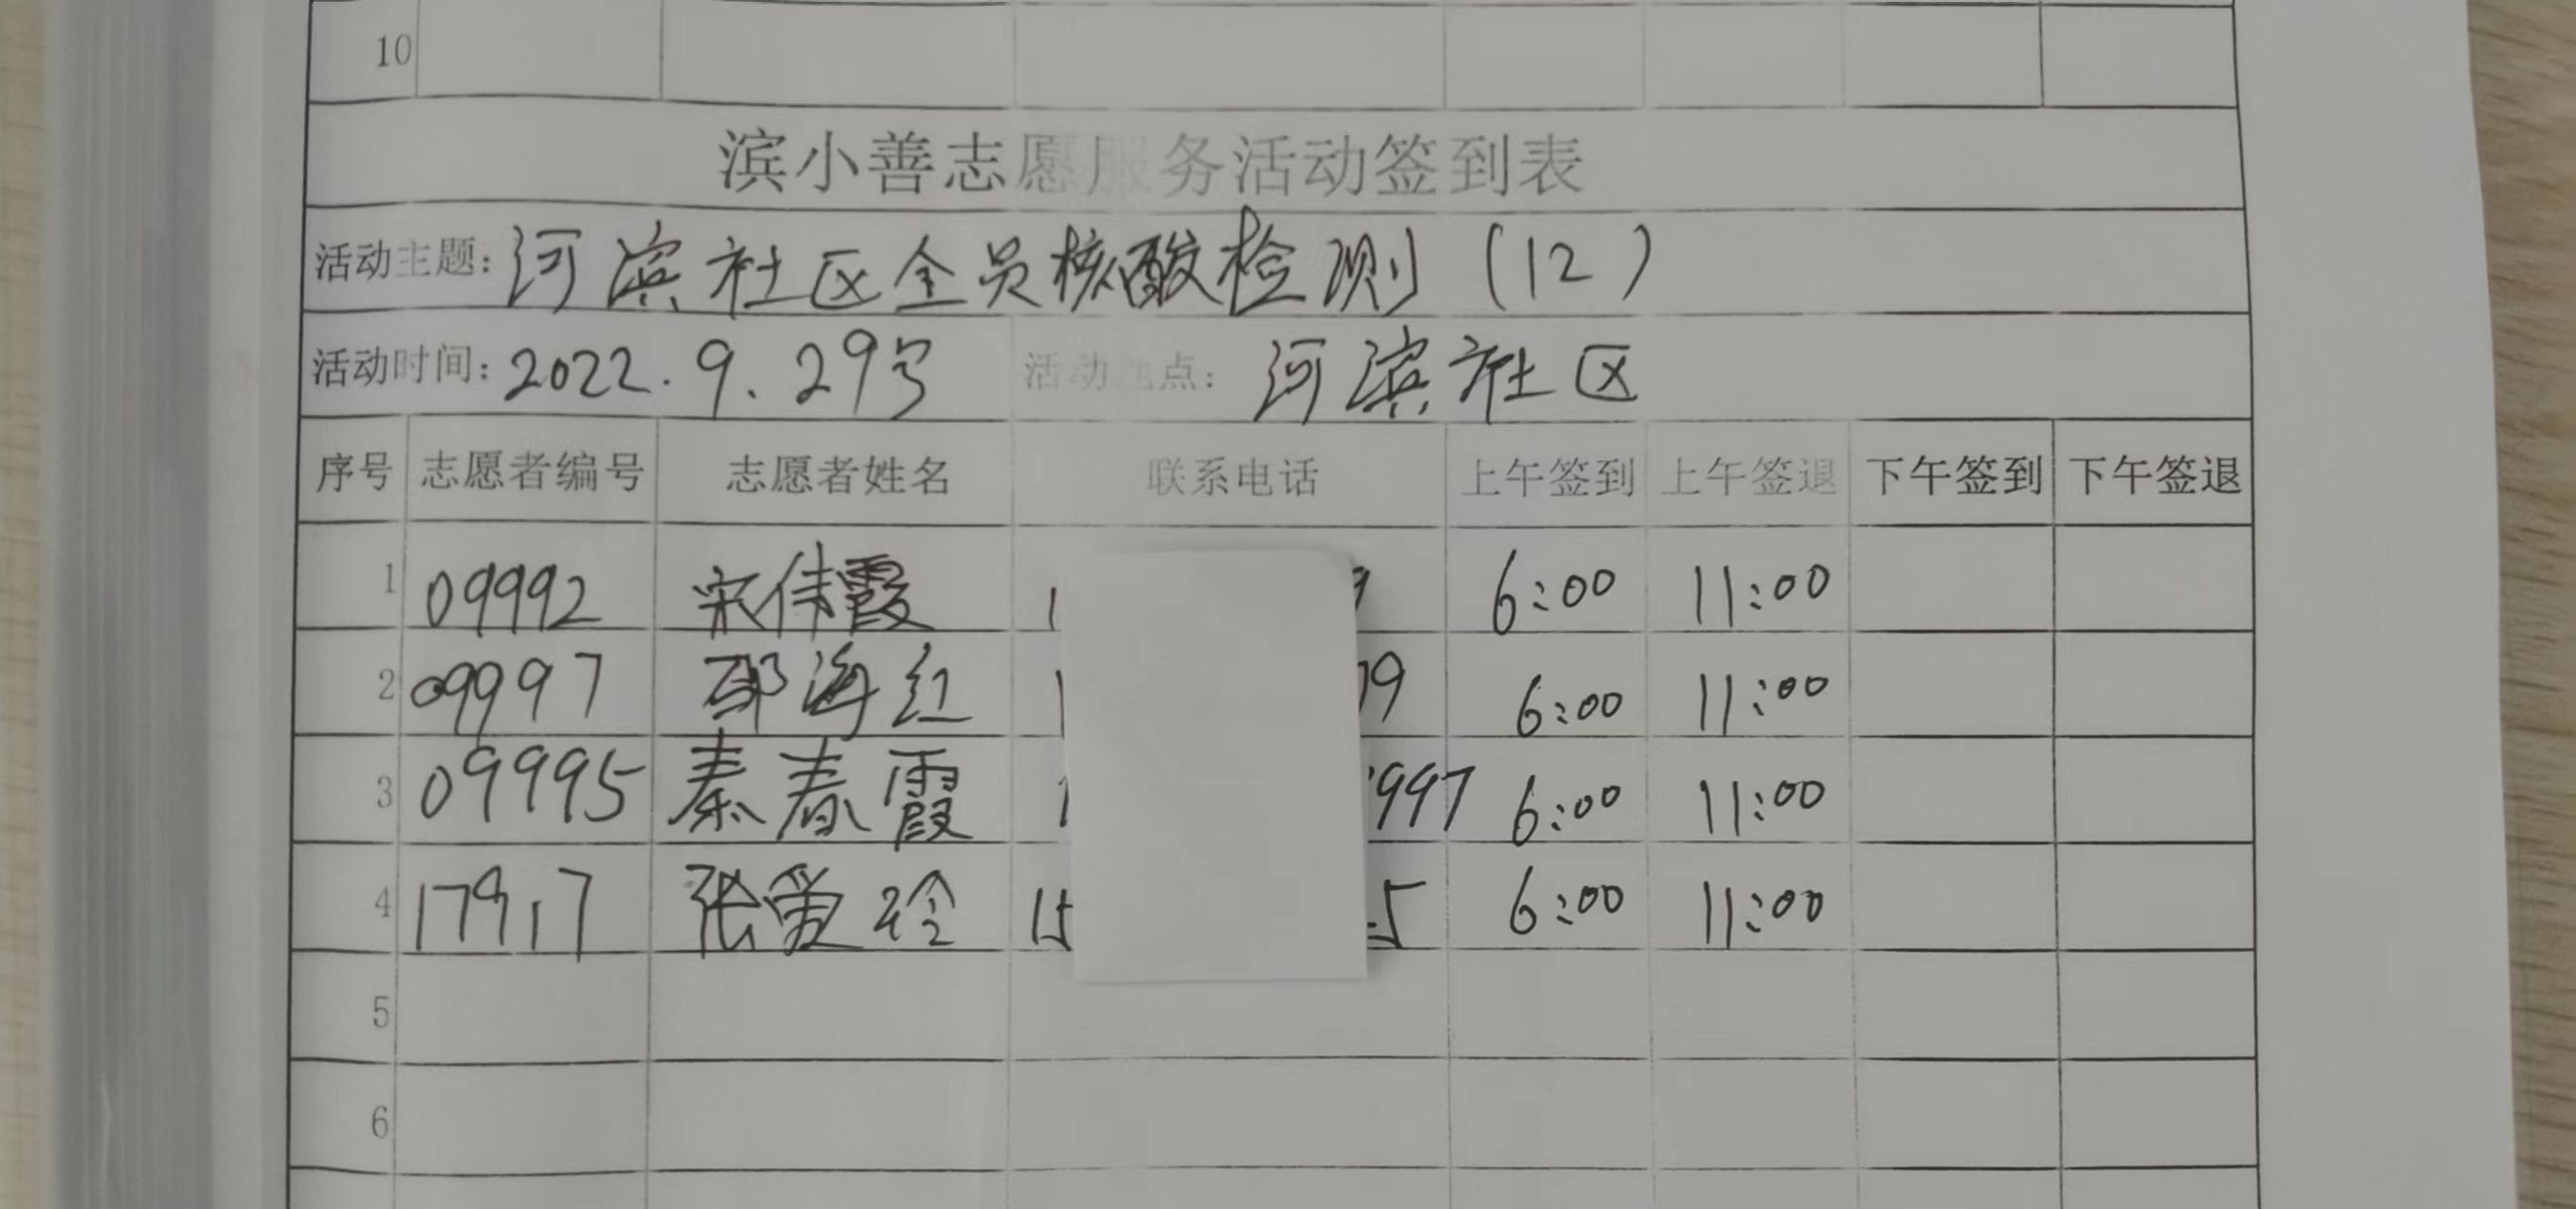 10
滨小善志愿服务活动签到表
活动主题：河滨社区全员核酸检测（12）
活动时间：2022.9.29号 活动地点：河滨社区
序号 志愿者编号 志愿者姓名 联系电话 上午签到 上午签退 下午签到 下午签退
1 09992 宋伟霞 1 9 6:00 11:00
2 09997 邵海红 1 79 6:00 11:00
3 09995 秦春霞 1 997 6:00 11:00
4 17917 张爱玲 15 5 6:00 11:00
5
6